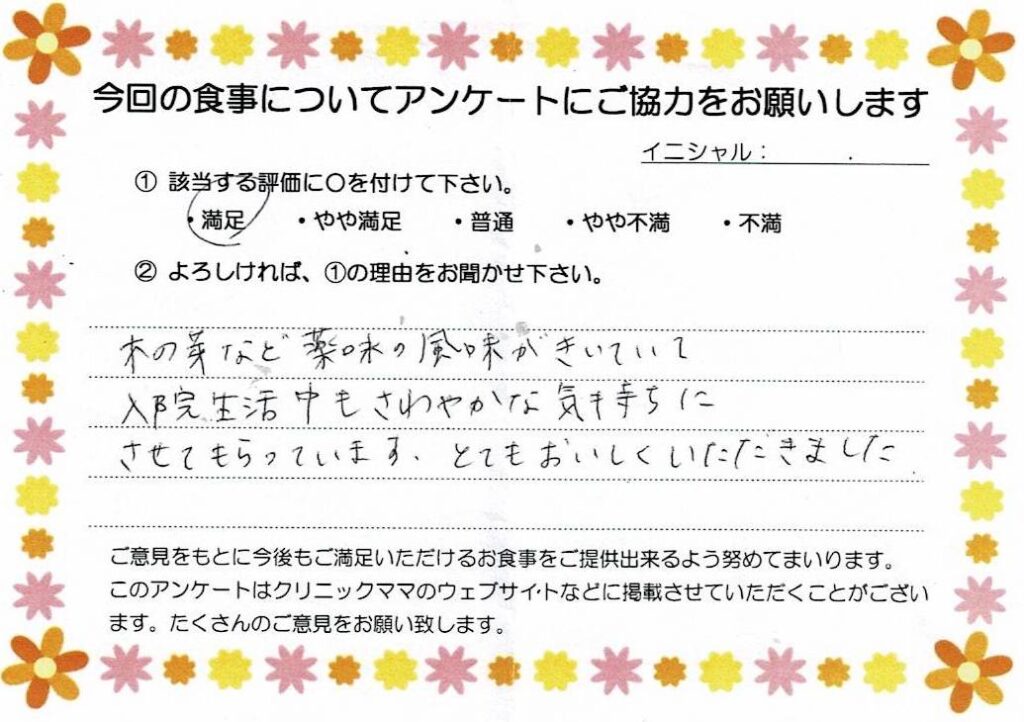 今回の食事についてアンケートにご協力をお願いします
イニシャル：
① 該当する評価に〇を付けて下さい。
・満足 ・やや満足 ・普通 ・やや不満 ・不満
② よろしければ、①の理由をお聞かせ下さい。
木の芽など薬味の風味がきいていて
入院生活中もさわやかな気持ちに
させてもらっています。とてもおいしくいただきました
ご意見をもとに今後もご満足いただけるお食事をご提供出来るよう努めてまいります。
このアンケートはクリニックママのウェブサイトなどに掲載させていただくことがござい
ます。たくさんのご意見をお願い致します。